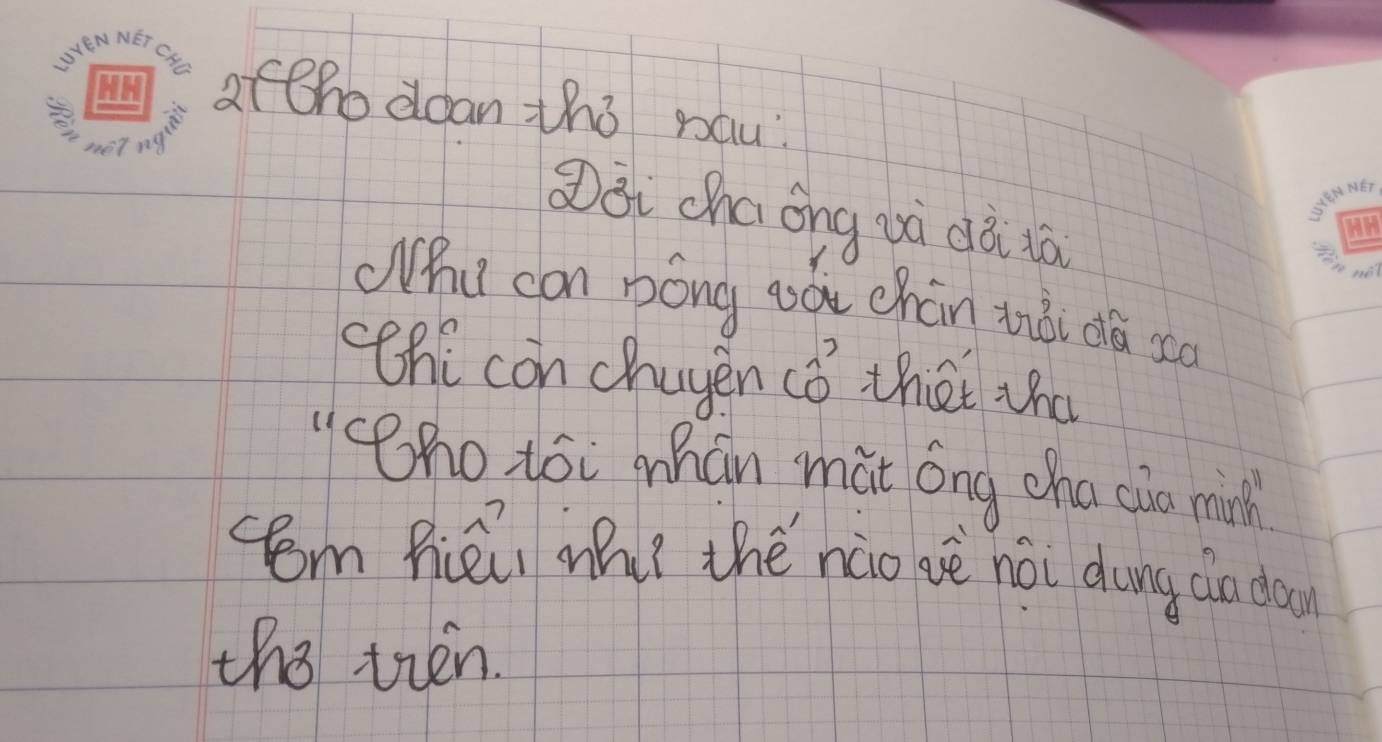 LUYỆN NÉT CHỮ
HH
Rèn nét người
2, Cho đoạn thơ sau:
Đời cha ông và đời tôi
Như con sông với chân trời đã xa
Chỉ còn chuyện cổ thiết tha
"Cho tôi nhận mặt ông cha của mình".
Em hiểu như thế nào về nội dung của đoạn
thơ trên.
LUYỆN NÉT
HH
Rèn nét